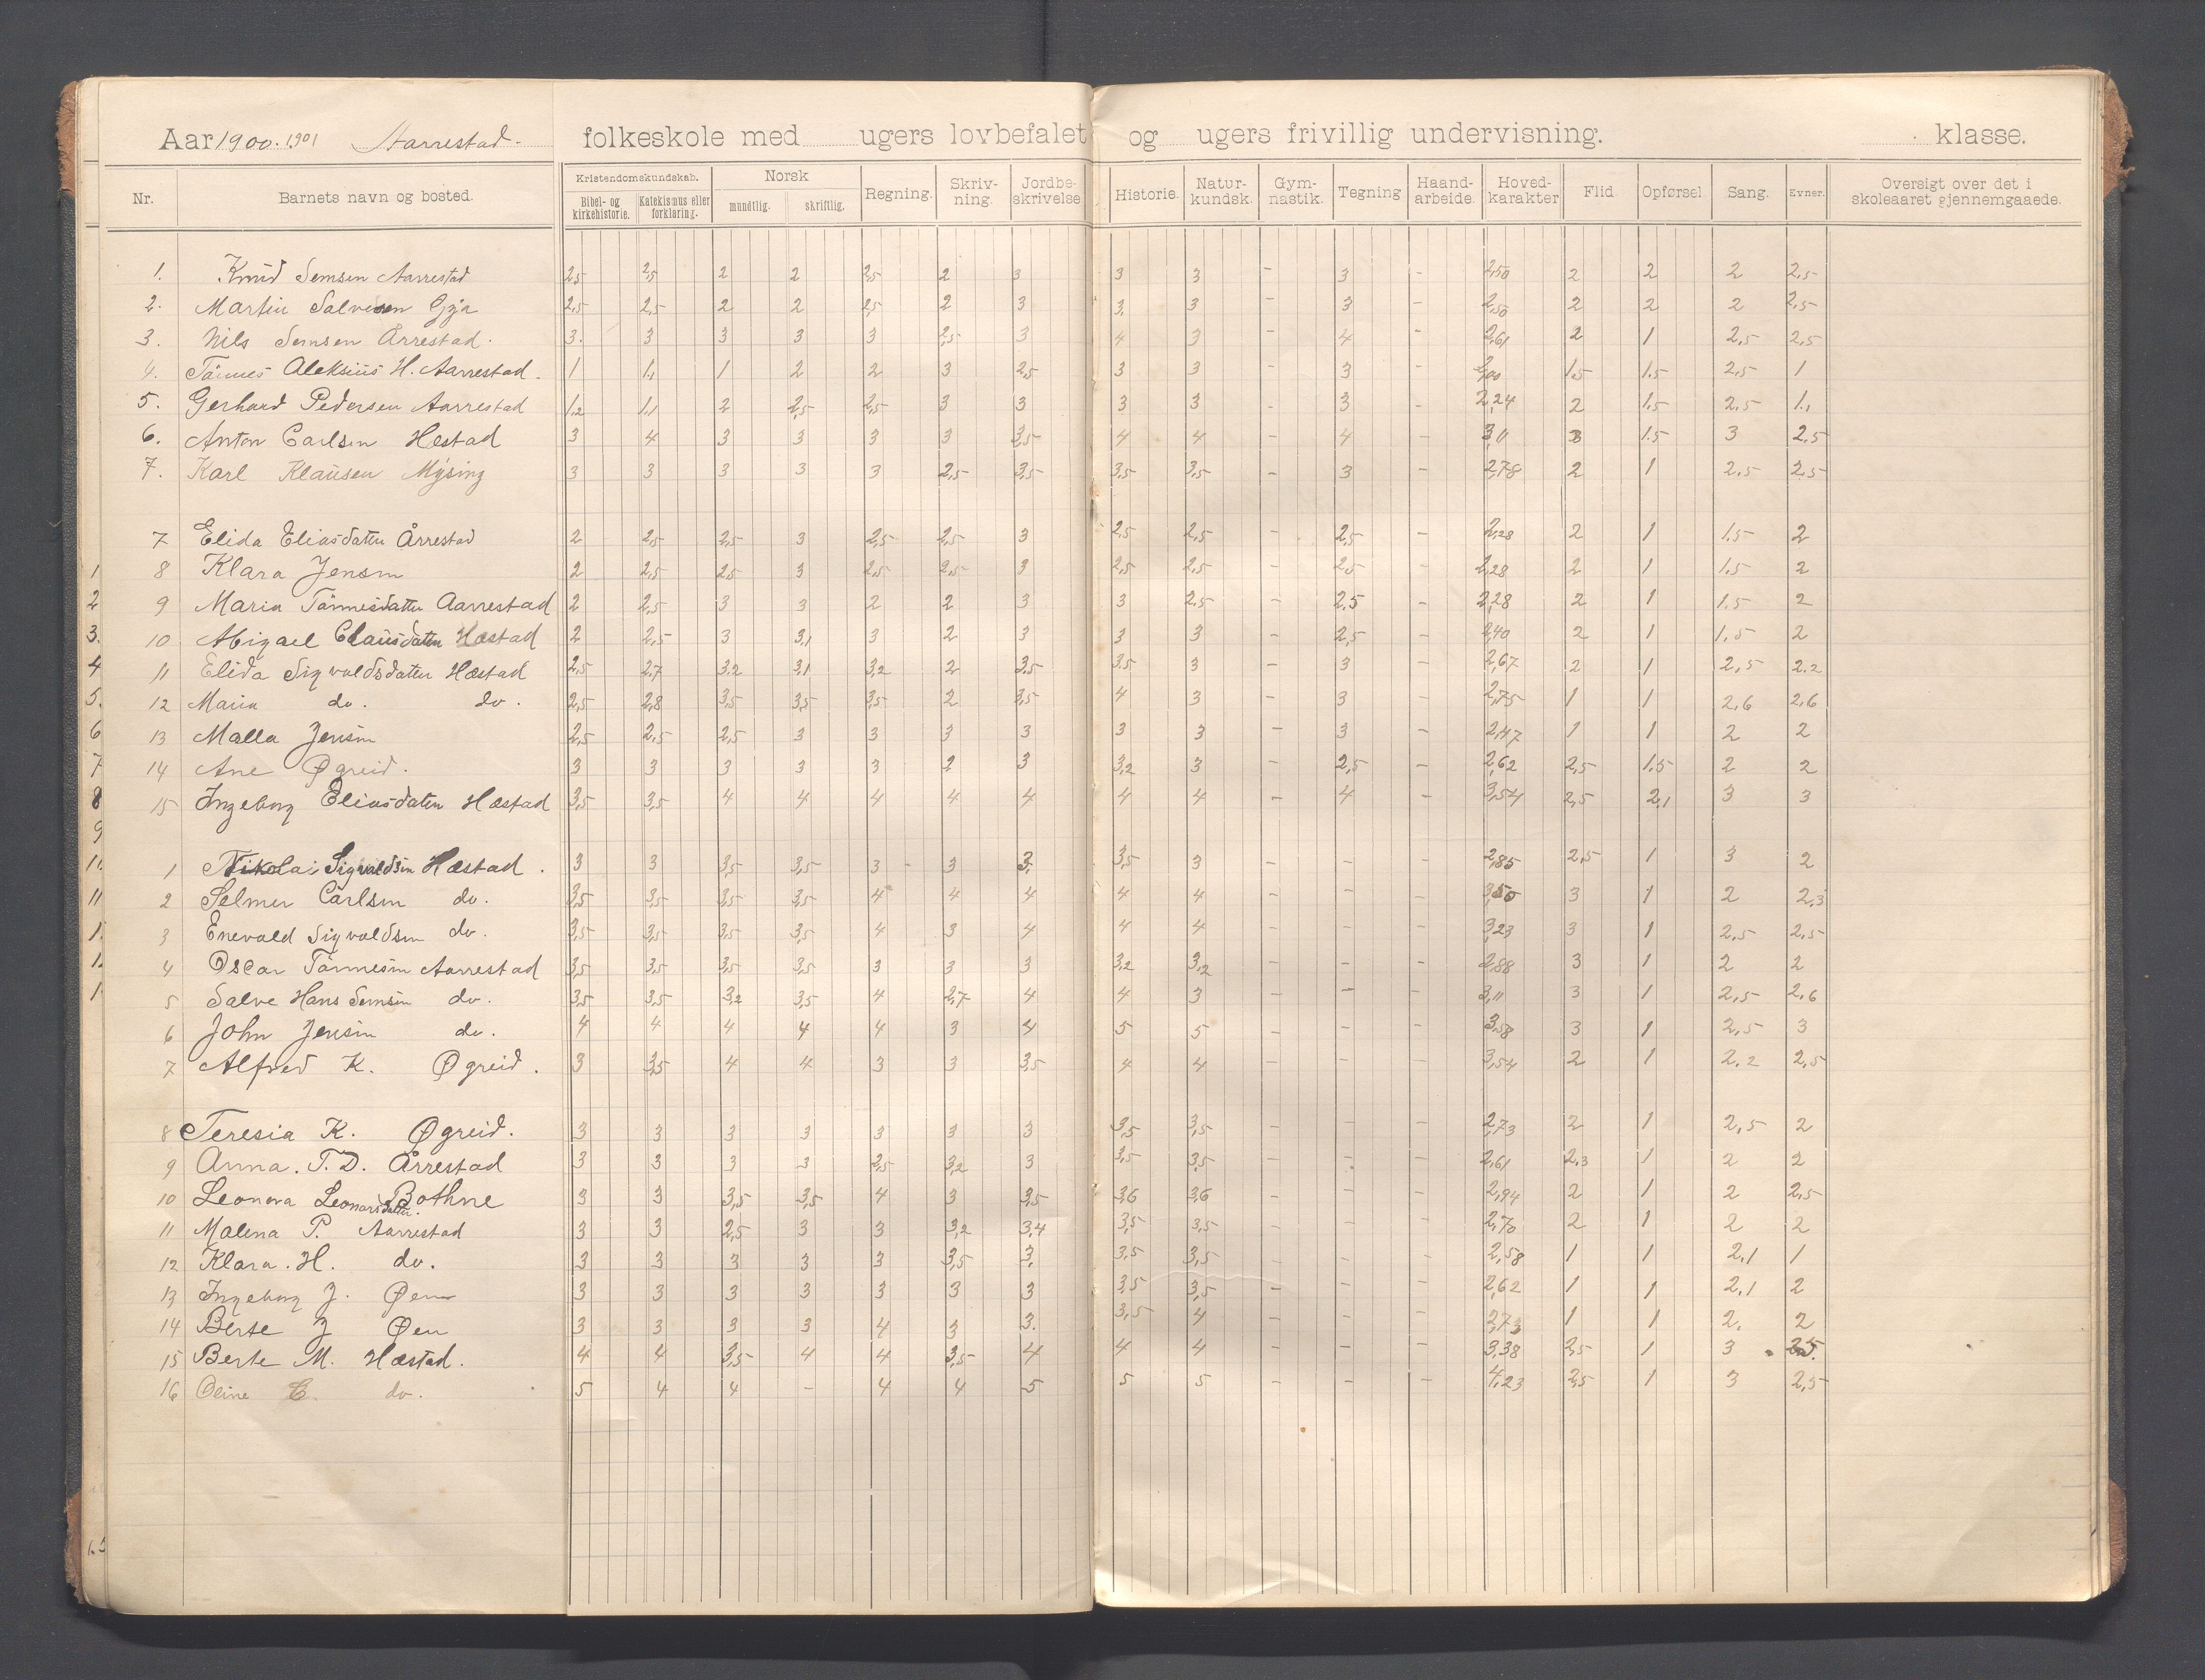 Aar 1900-1901 Aarrestad folkeskole med ugers lovbefalet og ugers frivillig undervisning. klasse.
Nr. Barnets navn og bosted. Kristendomskundskab. Bibel- og kirkehistorie. Katekismus eller forklaring. Norsk mundtlig. skriftlig. Regning. Skriv-ning. Jordbe-skrivelse Historie. Natur-kundsk. Gym-nastik. Tegning Haand-arbeide. Hoved-karakter Flid. Opførsel Sang. Evner. Oversigt over det i skoleaaret gjennemgaaede.
1. Knud Semsen Aarrestad 2,5 2,5 2 2 2,5 2 3 3 3 - 3 - 2,50 2 2 2 2,5
2. Martin Salvesen Gya 2,5 2,5 2 2 2,5 2 3 3. 3 - 3 - 2,50 2 2 2 2,5
3. Nils Semsen Årrestad. 3. 3 3 3 3 2,5 3 4 3 - 4 - 2,61 2 1 2,5 2,5
4. Tønnes Aleksius H. Aarrestad. 1 1,1 1 2 2 3 2,5 3 3 - 3 - 2,00 1.5 1.5 2,5 1
5. Gerhard Pedersen Aarrestad 1,2 1,1 2 2,5 2,5 3 3 3 3 - 3 - 2,24 2 1.5 2.5 1.,
6. Anton Carlsen Hestad 3 4 3 3 3 3 3,5 4 4 - 4 - 3,11 3 1.5 3 2.5
7. Karl Klausen Mysing 3 3 3 3 3 2,5 3,5 3,5 3,5 - 3 - 2,78 2 1 2.5 2.5
7 Elida Eliasdatter Årrestad 2 2,5 2,5 3 2,5 2,5 3 2,5 2,5 - 2,5 - 2,28 2 1 1.5 2
1 8 Klara Jensen 2 2,5 2,5 3 2,5 2,5 3 2,5 2,5 - 2,5 - 2,28 2 1 1.5 2
2 9 Maria Tønnesdatter Aarrestad 2 2,5 3 3 2 2 3 3 2,5 - 2,5 - 2,28 2 1 1.5 2
3. 10 Abigael Clausdatter Hæstad 2 2,5 3 3,1 3 2 3 3 3 - 2,5 - 2,40 2 1 1.5 2
4 11 Elida Sigvaldsdatter Hæstad 2,5 2,7 3,2 3,1 3,2 2 3,5 3,5 3 - 3 - 2,67 2 1 2,5 2.2
5. 12 Maria do. do. 2,5 2,8 3,5 3,5 3,5 2 3,5 4 3 - 3 - 2,75 1 1 2,6 2,6
6 13 Malla Jensen 2,5 2,5 2,5 3 3 3 3 3 3 - 3 - 2,47 1 1 2 2
7 14 Ane Øgreid. 3 3 3 3 3 2 3 3,2 3 - 2,5 - 2,62 2,5 1.5 2 2
8 15 Ingeborg Eliasdatter Hæstad 3,5 3,5 4 4 4 4 4 4 4 - 4 - 3,54 2,5 2,1 3 3
9
1. 1 Nikolai Sigvaldsen Hæstad. 3 3 3,5 3,5 3 - 3 3. 3,5 3 - - - 2,85 2,5 1 3 2
11 2 Selmer Carlsen do. 3,5 3,5 3,5 3,5 4 4 4 4 4 - - - 3,50 3 1 2 2,3
1. 3 Enevald Sigvaldsen do. 3,5 3,5 3,5 3,5 4 3 4 4 4 - - - 3,23 3 1 2,5 2,5
1. 4 Oscar Tønnesen Aarrestad 3,5 3,5 3,5 3,5 3 3 3 3,2 3,2 - - - 2,88 3 1 2 2
1. 5 Salve Hans Semsen do. 3,5 3,5 3,2 3,5 4 2,7 4 4 3 - - - 3,11 3 1 2,5 2,6
6 John Jensen do. 4 4 4 4 4 3 4 5 5 - - - 3,58 3 1 2,5 3
7 Alfred K. Øgreid. 3 3,5 4 4 3 3 3,5 4 4 - - - 3,54 2 1 2.2 2,5
8 Teresia K. Øgreid. 3 3 3 3 3 3 3 3,5 3,5 - - - 2,73 2 1 2,5 2
9 Anna. T. D. Årrestad 3 3 3 3 2,5 3,2 3 3,5 3,5 - - - 2,61 2,3 1 2 2
10 Leonora Leonarsdatter. Bothne 3 3 3,5 3,5 4 3 3,5 3,6 3,6 - - - 2,94 2 1 2 2,5
11 Malena P. Aarrestad 3 3 2,5 3 3 3,2 3,4 3,5 3,5 - - - 2,70 2 1 2 2
12 Klara. H. do. 3 3 3 3 3 3,5 3. 3,5 3,5 - - - 2,58 1 1 2,1 1
13 Ingeborg J. Øen 3 3 3 3 3 3 3 3,5 3,5 - - - 2,62 1 1 2,1 2
14 Berte J Øen 3 3 3 3 4 3 3. 3,5 4 - - - 2,73 1 1 2, 2
15 Berte M. Hæstad. 4 4 3,5 4 4 3,5 4 4 4 - - - 3,38 2,5 1 3 2,5.
16 Oline C. do. 5 4 4 - 4 4 5 5 5 - - - 4,23 2,5 1 3 2,5